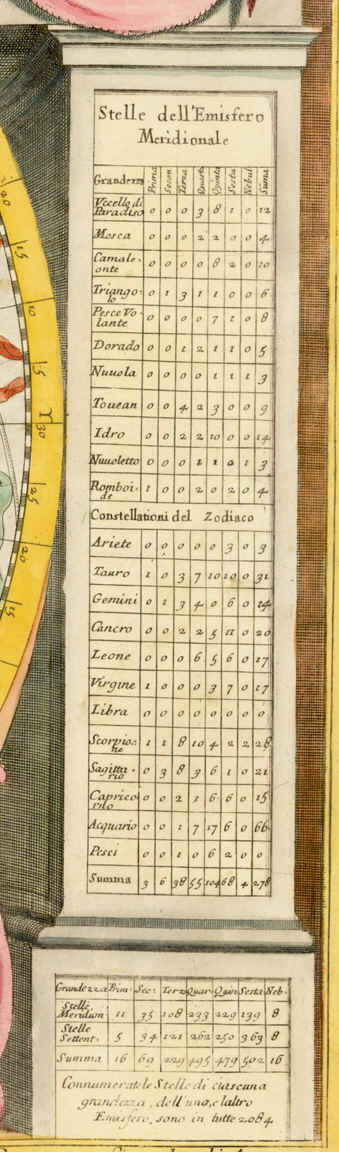 Stelle dell'Emisfero
Meridionale
Grandezza Prima Secon Terza Quarta Quinta Sesta Nebul Suma
Vccello di Paradiso 0 0 0 3 8 1 0 12
Mosca 0 0 0 2 2 0 0 4
Camale-onte 0 0 0 0 8 2 0 10
Triango-lo 0 1 3 1 1 0 0 6
Pesce Vo-lante 0 0 0 0 7 1 0 8
Dorado 0 0 1 2 1 1 0 5
Nuuola 0 0 0 0 1 1 1 3
Toucan 0 0 4 2 3 0 0 9
Idro 0 0 2 2 10 0 0 14
Nuuoletto 0 0 0 1 1 0 1 3
Romboi-de 1 0 0 2 0 2 0 4
Constellationi del Zodiaco
Ariete 0 0 0 0 0 3 0 3
Tauro 1 0 3 7 10 10 0 31
Gemini 0 1 3 4 0 6 0 14
Cancro 0 0 2 2 5 11 0 20
Leone 0 0 0 6 5 6 0 17
Virgine 1 0 0 0 3 7 0 17
Libra 0 0 0 0 0 0 0 0
Scorpio-ne 1 1 8 10 4 2 2 28
Sagitta-rio 0 3 8 3 6 1 0 21
Caprico-rno 0 0 2 1 6 6 0 15
Acquario 0 0 1 7 17 6 0 66
Pesci 0 0 1 0 6 2 0 0
Summa 3 6 38 55 104 68 4 278
Grandezza Prim. Sec. Terz. Quar. Quin. Sesta Neb.
Stelle Meridion 11 35 108 233 229 139 8
Stelle Settent. 5 34 121 262 250 363 8
Summa 16 69 229 495 479 502 16
Connumerate le Stelle di ciascuna
grandezza, dell' uno, e l'altro
Emisfero, sono in tutte 2084
20
15
10
5
30
25
20
15